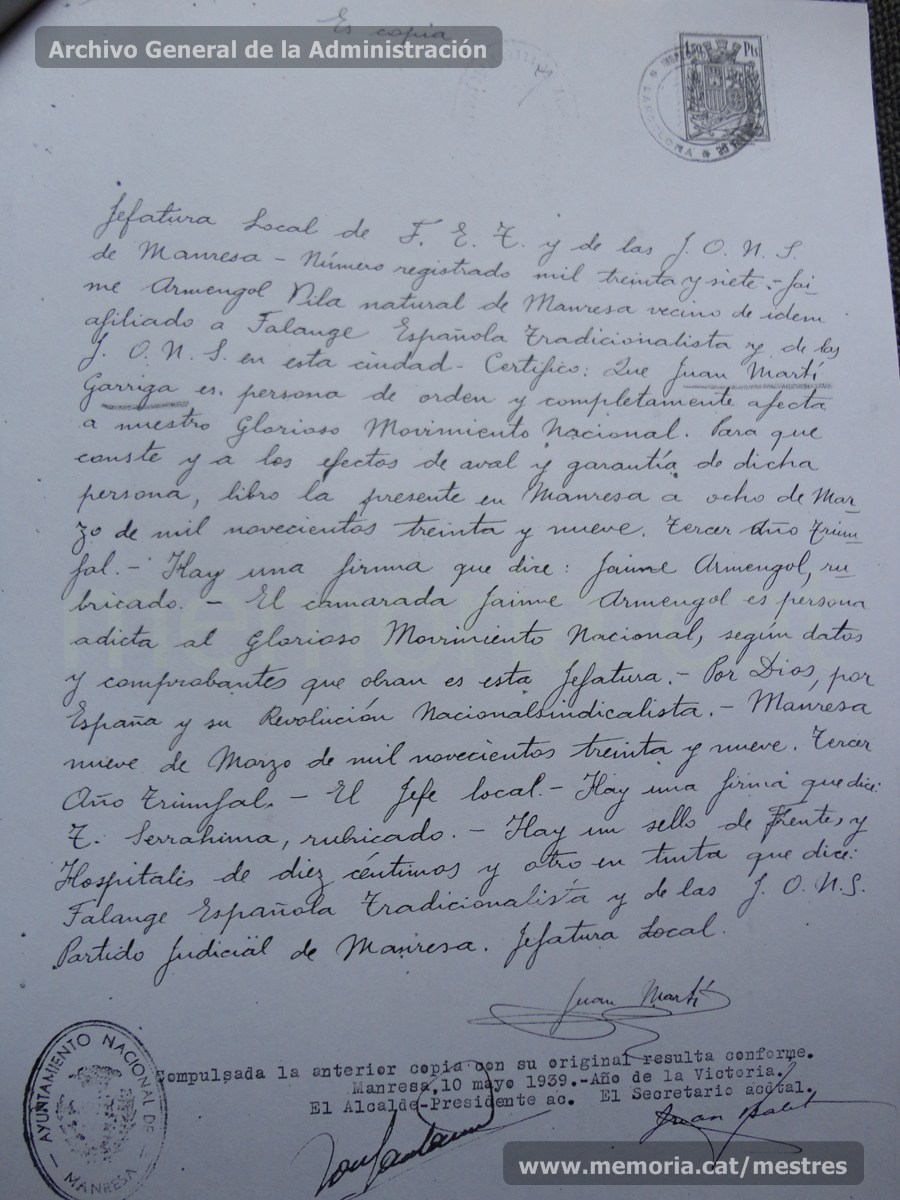 Es copia
Archivo General de la Administración
1'50 Pts
BARCELONA
Jefatura Local de F. E. T. y de las J. O. N. S.
de Manresa - Número registrado mil treinta y siete.- Jai-
me Armengol Vila natural de Manresa vecino de idem
afiliado a Falange Española Tradicionalista y de las
J. O. N. S. en esta ciudad - Certifico: Que Juan Martí
Garriga es persona de orden y completamente afecta
a nuestro Glorioso Movimiento Nacional. Para que
conste y a los efectos de aval y garantía de dicha
persona, libro la presente en Manresa a ocho de Mar-
zo de mil novecientos treinta y nueve. Tercer Año Triun-
fal.- Hay una firma que dice: Jaime Armengol, ru-
bricado. - El camarada Jaime Armengol es persona
adicta al Glorioso Movimiento Nacional, según datos
y comprobantes que obran es esta Jefatura.- Por Dios, por
España y su Revolución Nacionalsindicalista.- Manresa
nueve de Marzo de mil novecientos treinta y nueve. Tercer
Año Triunfal. - El Jefe local.- Hay una firma que dice:
T. Serrahima, rubricado. - Hay un sello de Frentes y
Hospitales de diez céntimos y otro en tinta que dice:
Falange Española Tradicionalista y de las J. O. N. S.
Partido Judicial de Manresa. Jefatura Local.
Juan Martí
AYUNTAMIENTO NACIONAL DE
MANRESA
Compulsada la anterior copia con su original resulta conforme.
Manresa,10 mayo 1939.-Año de la Victoria.
El Alcalde-Presidente ac. El Secretario acctal.
www.memoria.cat/mestres